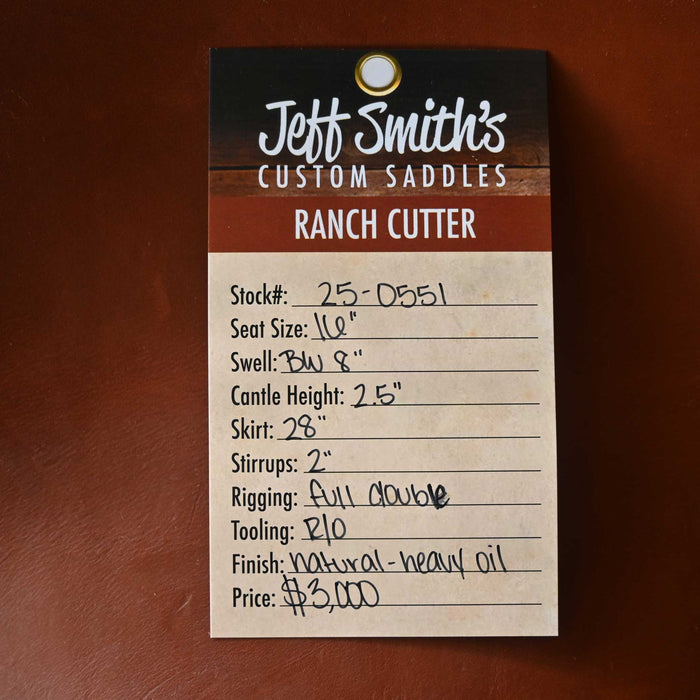 Jeff Smith's
CUSTOM SADDLES
RANCH CUTTER
Stock#: 25-0551
Seat Size: 16"
Swell: BW 8"
Cantle Height: 2.5"
Skirt: 28"
Stirrups: 2"
Rigging: full double
Tooling: R/O
Finish: natural-heavy oil
Price: $3,000